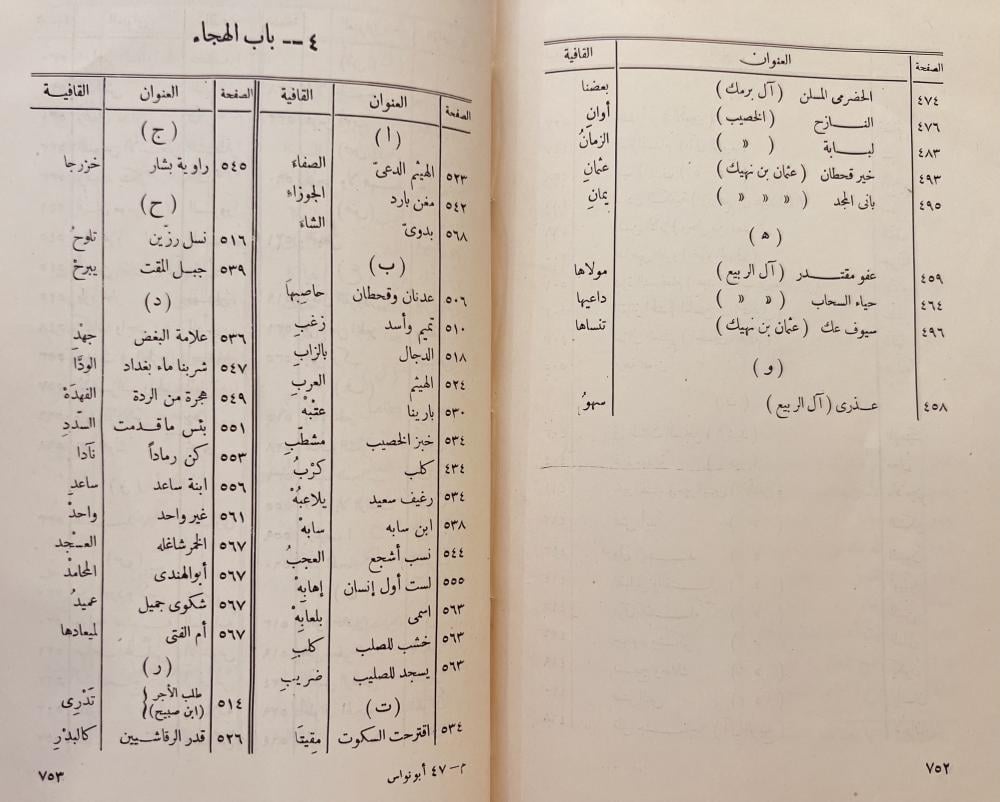 الصفحة العنوان القافية
٤٧٤ الحضرمى المسلن (آل برمك) بعضنا
٤٧٦ النــازح (الخصيب) أوانِ
٤٨٣ لبــابة ( « ) الزمانُ
٤٩٣ خير قحطان (عثمان بن نهيك) عثمانِ
٤٩٥ بانى المجد ( « « « ) يمانِ
(ه)
٤٥٩ عفو مقتــدر (آل الربيع) مولاها
٤٦٤ حياء السحاب ( « « ) داعيها
٤٩٦ سيوف عك (عثمان بن نهيك) تنساها
(و)
٤٥٨ عــذرى (آل الربيع) سهوُ
٧٥٢
٤ -- باب الهجاء
الصفحة العنوان القافية
(ا)
٥٢٣ الهيثم الدعىّ الصفاءَ
٥٤٢ مغن بارد الجوزاءُ
٥٦٨ بدوىّ الشاءَ
(ب)
٥٠٦ عدنان وقحطان حاصبها
٥١٠ تميم وأسد زغبِ
٥١٨ الدجال بالزابِ
٥٢٤ الهيثم العربِ
٥٣٠ بارينا عتبْهْ
٥٣٤ خبز الخصيب مشطّبِ
٤٣٤ كلب كرْبُ
٥٣٤ رغيف سعيد يلاعبُهْ
٥٣٨ ابن سابه سابهْ
٥٤٤ نسب أشجع العجبُ
٥٥٥ لست أول إنسان إهابِهْ
٥٦٣ اسمى بلعابِهْ
٥٦٣ خشب للصلب كلبِ
٥٦٣ يسجد للصليب ضريبِ
(ت)
٥٣٤ اقترحت السكوت مِقيتَا
الصفحة العنوان القافيــة
(ج)
٥٤٥ راوية بشار خزرجا
(ح)
٥١٦ نسل رزّين تلوحُ
٥٣٩ جبــل المقت يبرحْ
(د)
٥٣٦ علامة البغض جهْدِ
٥٤٧ شربنا ماء بغداد الودَّا
٥٤٩ هجرة من الردة الفهدَهْ
٥٥١ بئس ماقــدمت السدّدِ
٥٥٣ كن رماداً نآدا
٥٥٦ ابنة ساعد ساعدِ
٥٦١ غير واحد واحدْ
٥٦٧ الخمر شاغله العسْجد
٥٦٧ أبوالهندى المحامدْ
٥٦٧ شكوى جميل عميدُ
٥٦٧ أم الفتى لميعادها
(ر)
٥١٤ طلب الأجر (ابن صبيح) تَدْرِى
٥٢٦ قدر الرقاشــيين كالبدْرِ
م – ٤٧ أبو نواس
٧٥٣